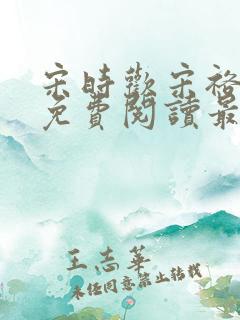 宋時歡宋裕
免費閱讀最
王志華
未经同意禁止转载